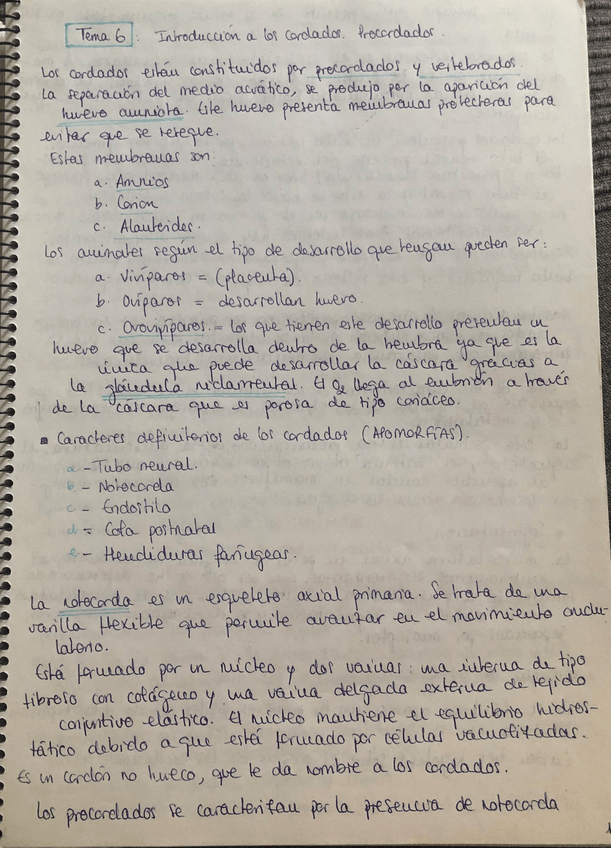 Tema 6: Introducción a los cordados. Procordados.
Los cordados están constituidos por procordados y vertebrados.
La separación del medio acuático, se produjo por la aparición del
huevo amniota. Este huevo presenta membranas protectoras para
evitar que se reseque.
Estas membranas son:
a. Amnios
b. Corion
c. Alantoides.
Los animales según el tipo de desarrollo que tengan pueden ser:
a. Vivíparos = (placenta).
b. Ovíparos = desarrollan huevo.
c. Ovovivíparos = los que tienen este desarrollo presentan un
huevo que se desarrolla dentro de la hembra ya que es la
única que puede desarrollar la cáscara gracias a
la glándula nidamental. El O2 llega al embrión a través
de la cáscara que es porosa de tipo coriáceo.
Caracteres definitorios de los cordados (APOMORFÍAS).
a - Tubo neural.
b - Notocorda
c - Endostilo
d - Cola postnatal
e - Hendiduras faríngeas.
La notocorda es un esqueleto axial primario. Se trata de una
varilla flexible que permite avanzar en el movimiento ondu-
latorio.
Está formado por un núcleo y dos vainas: una interna de tipo
fibroso con colágeno y una vaina delgada externa de tejido
conjuntivo elástico. El núcleo mantiene el equilibrio hidros-
tático debido a que está formado por células vacuolizadas.
Es un cordón no hueco, que le da nombre a los cordados.
Los procordados se caracterizan por la presencia de notocorda